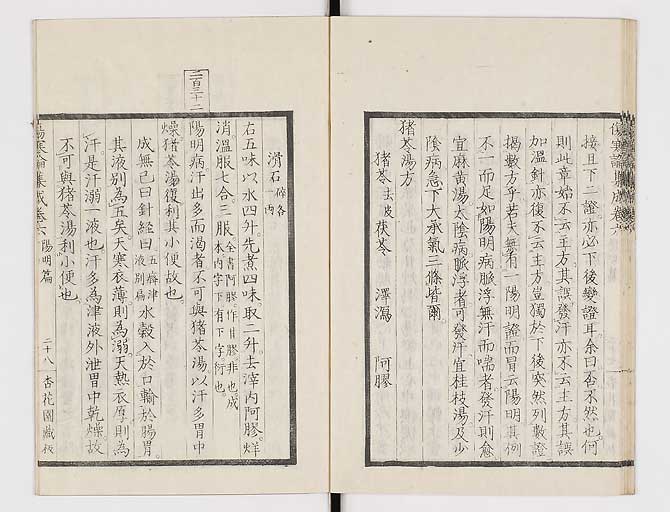 接且下二證亦必下後變證耳余曰否不然也何
則此章始不云主方其誤發汗亦不云主方其誤
加溫針亦復不云主方豈獨於下後突然列數證
揭數方乎若夫無有一陽明證而冒云陽明其例
不一而足如陽明病脈浮無汗而喘者發汗則愈
宜麻黃湯太陰病脈浮者可發汗宜桂枝湯及少
陰病急下大承氣三條皆爾
猪苓湯方
猪苓去皮 茯苓 澤瀉 阿膠
滑石碎各一兩
右五味以水四升先煮四味取二升去滓内阿膠烊
消溫服七合三服全書阿膠作甘膠非也成本内字下有下字衍也
二百三十二
陽明病汗出多而渴者不可與猪苓湯以汗多胃中
燥猪苓湯復利其小便故也
成無已曰針經曰五癃津液別篇水穀入於口輸於腸胃
其液別為五矣天寒衣薄則為溺天熱衣厚則為
汗是汗溺一液也汗多為津液外泄胃中乾燥故
不可與猪苓湯利小便也
傷寒論集成卷六 陽明篇 二十八 杏花園藏板